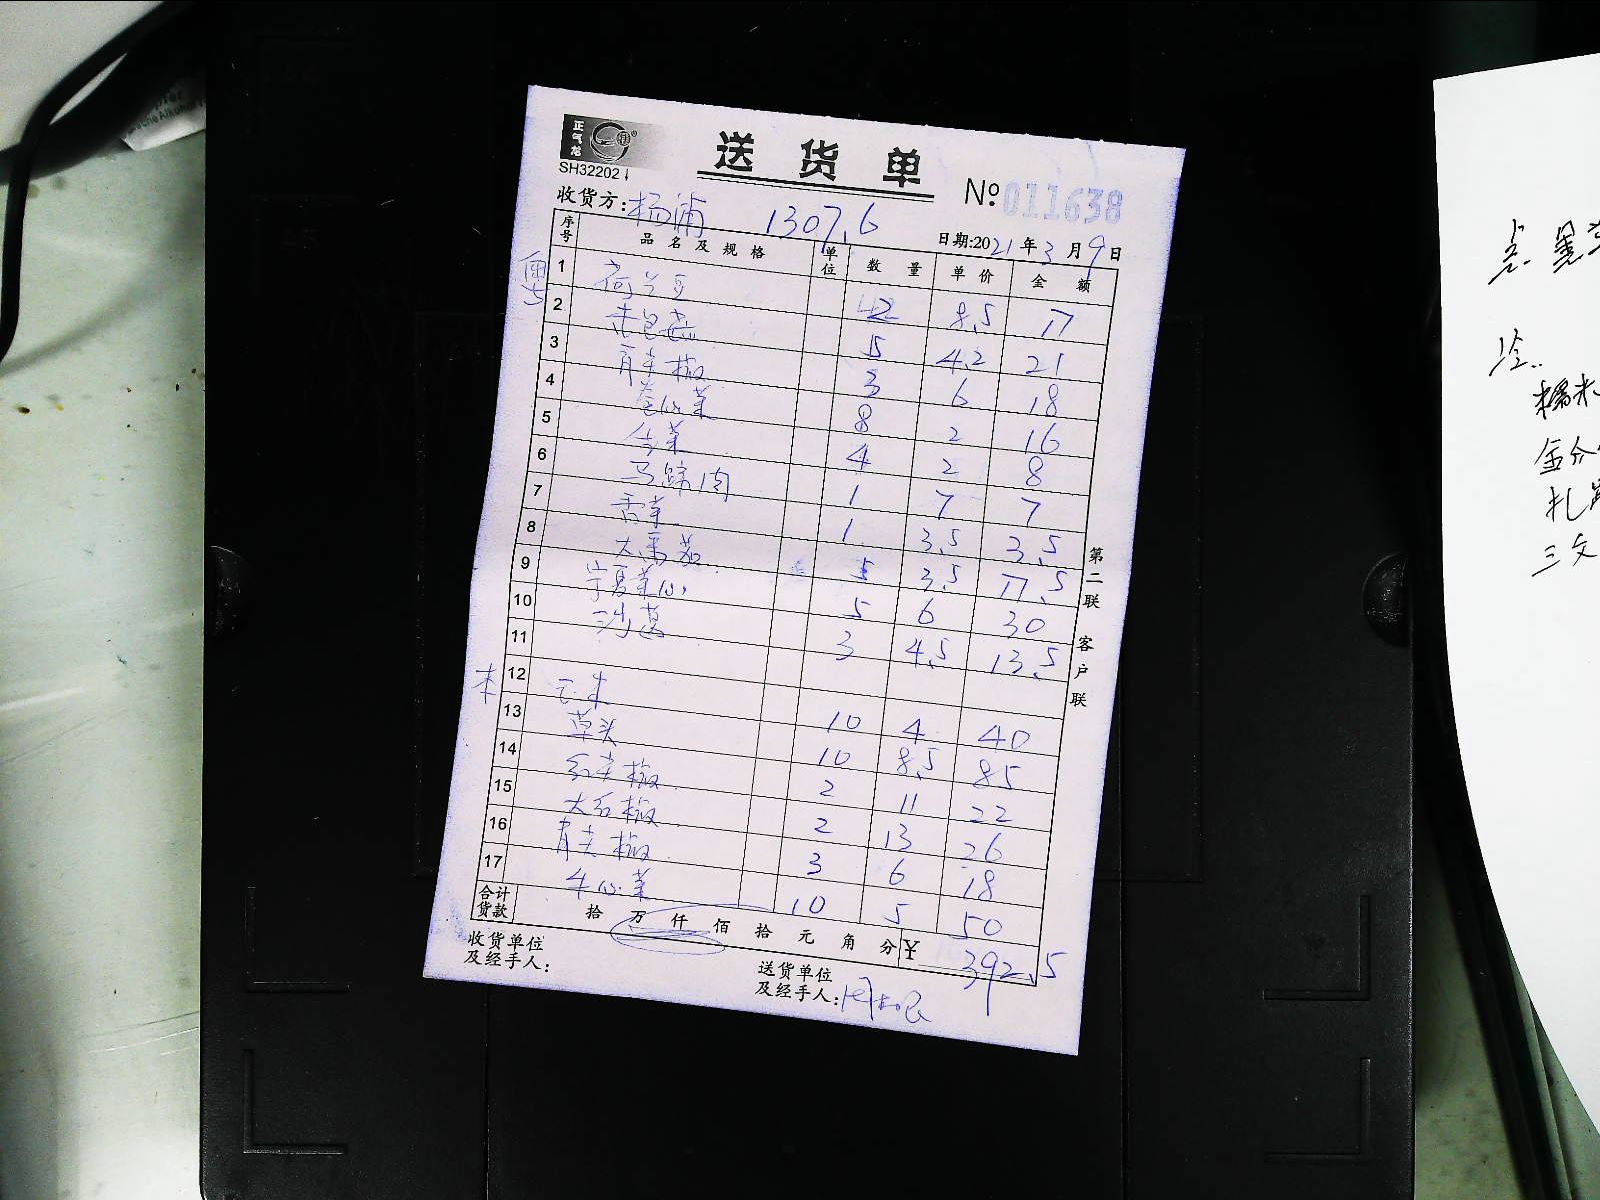 正气龙
送货单
SH32202
№ 011638
收货方: 杨浦 1307.6
日期: 2021年3月9日
序号 品名及规格 单位 数量 单价 金额
1 荷兰豆 2 8.5 17
2 杏包菇 5 4.2 21
3 青尖椒 3 6 18
4 卷心菜 8 2 16
5 生菜 4 2 8
6 马蹄肉 1 7 7
7 香菜 1 3.5 3.5
8 大番茄 5 3.5 17.5
9 宁夏菜心 5 6 30
10 沙葛 3 4.5 13.5
11
12 玉米 10 4 40
13 草头 10 8.5 85
14 红尖椒 2 11 22
15 大红椒 2 13 26
16 青尖椒 3 6 18
17 牛心菜 10 5 50
合计货款 拾 万 仟 佰 拾 元 角 分 ¥ 392.5
收货单位及经手人:
送货单位及经手人:
第二联 客户联
糯米
三文